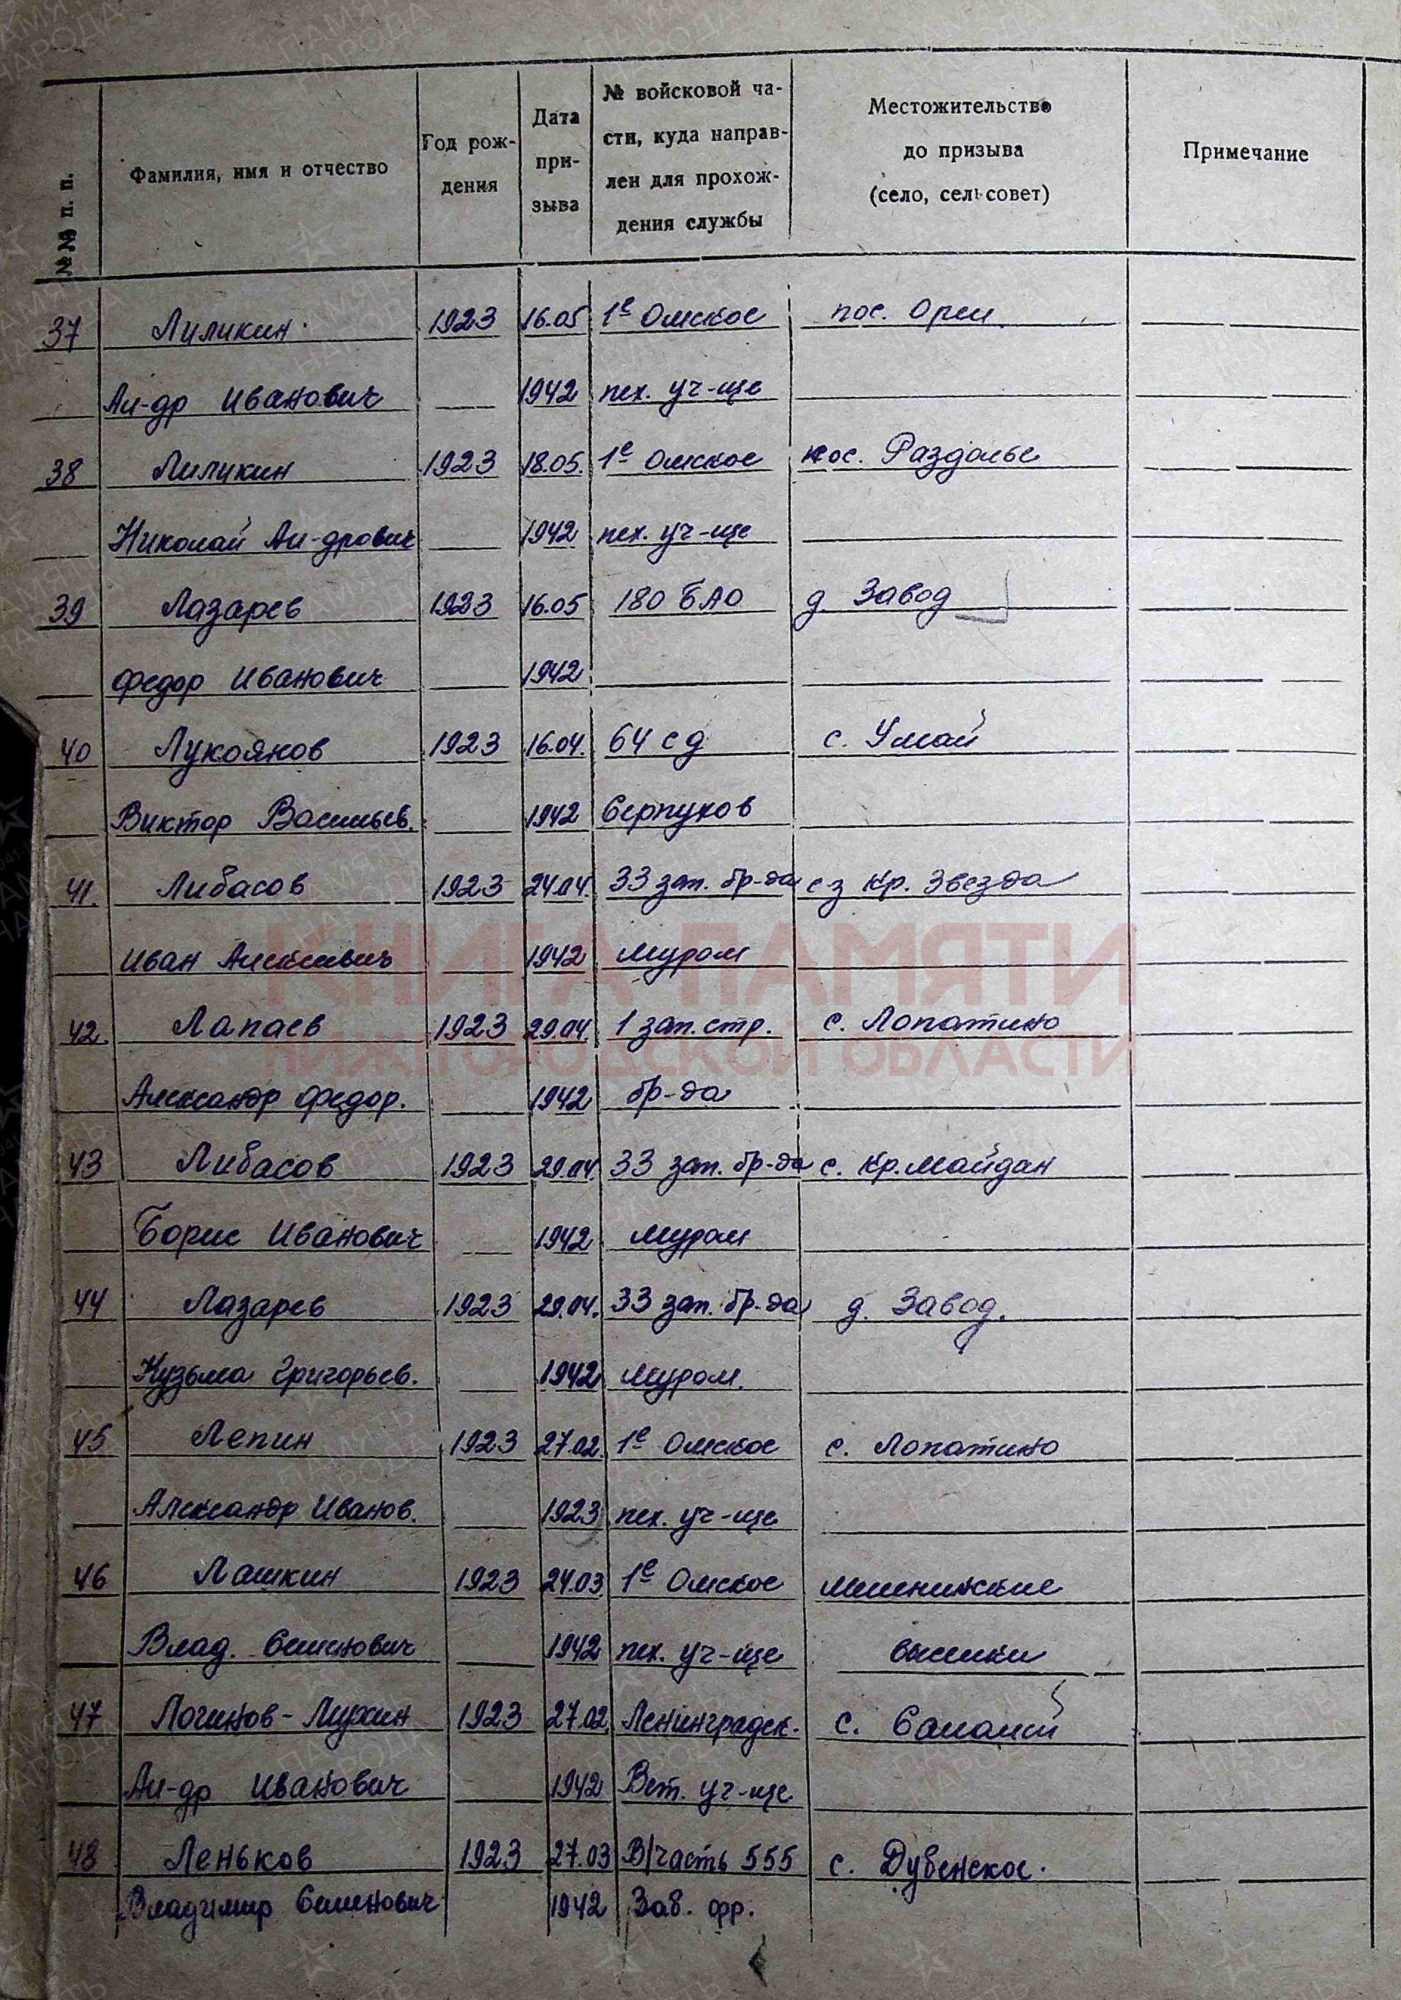 №№ п. п.
Фамилия, имя и отчество
Год рож-
дения
Дата
при-
зыва
№ войсковой ча-
сти, куда направ-
лен для прохож-
дения службы
Местожительство
до призыва
(село, сельсовет)
Примечание
37 Лиликин 1923 16.05 1е Омское пос. Орли
Ал-др Иванович 1942 пех. уч-ще
38 Лиликин 1923 18.05. 1е Омское пос. Раздолье
Николай Ал-дрович 1942 пех. уч-ще
39 Лазарев 1923 16.05 180 БАО д Завод
Федор Иванович 1942
40 Лукоянов 1923 16.04. 64 сд с. Умай
Виктор Васильев. 1942 Серпухов
41. Либасов 1923 24.04. 33 зап. бр-да с-з Кр. Звезда
Иван Алексеевич 1942 Муром
42. Лапаев 1923 29.04. 1 зап. стр. с. Лопатино
Александр Федор. 1942 бр-да
43 Либасов 1923 29.04. 33 зап. бр-да с. Кр. Майдан
Борис Иванович 1942 Муром
44 Лазарев 1923 29.04. 33 зап. бр-да д. Завод.
Кузьма Григорьев. 1942 Муром.
45 Лепин 1923 27.02. 1е Омское с. Лопатино
Александр Иванов. 1923 пех. уч-ще
46 Лашкин 1923 24.03 1е Омское
Влад. Семенович 1942 пех. уч-ще выселки
47 Логинов-Лихин 1923 27.02. Ленинградск. с.
Ал-др Иванович 1942 Вет. уч-ще
48 Леньков 1923 27.03 В/часть 555 с. Дубенское.
Владимир Семенович 1942 Зап. фр.
КНИГА ПАМЯТИ
НИЖЕГОРОДСКОЙ ОБЛАСТИ